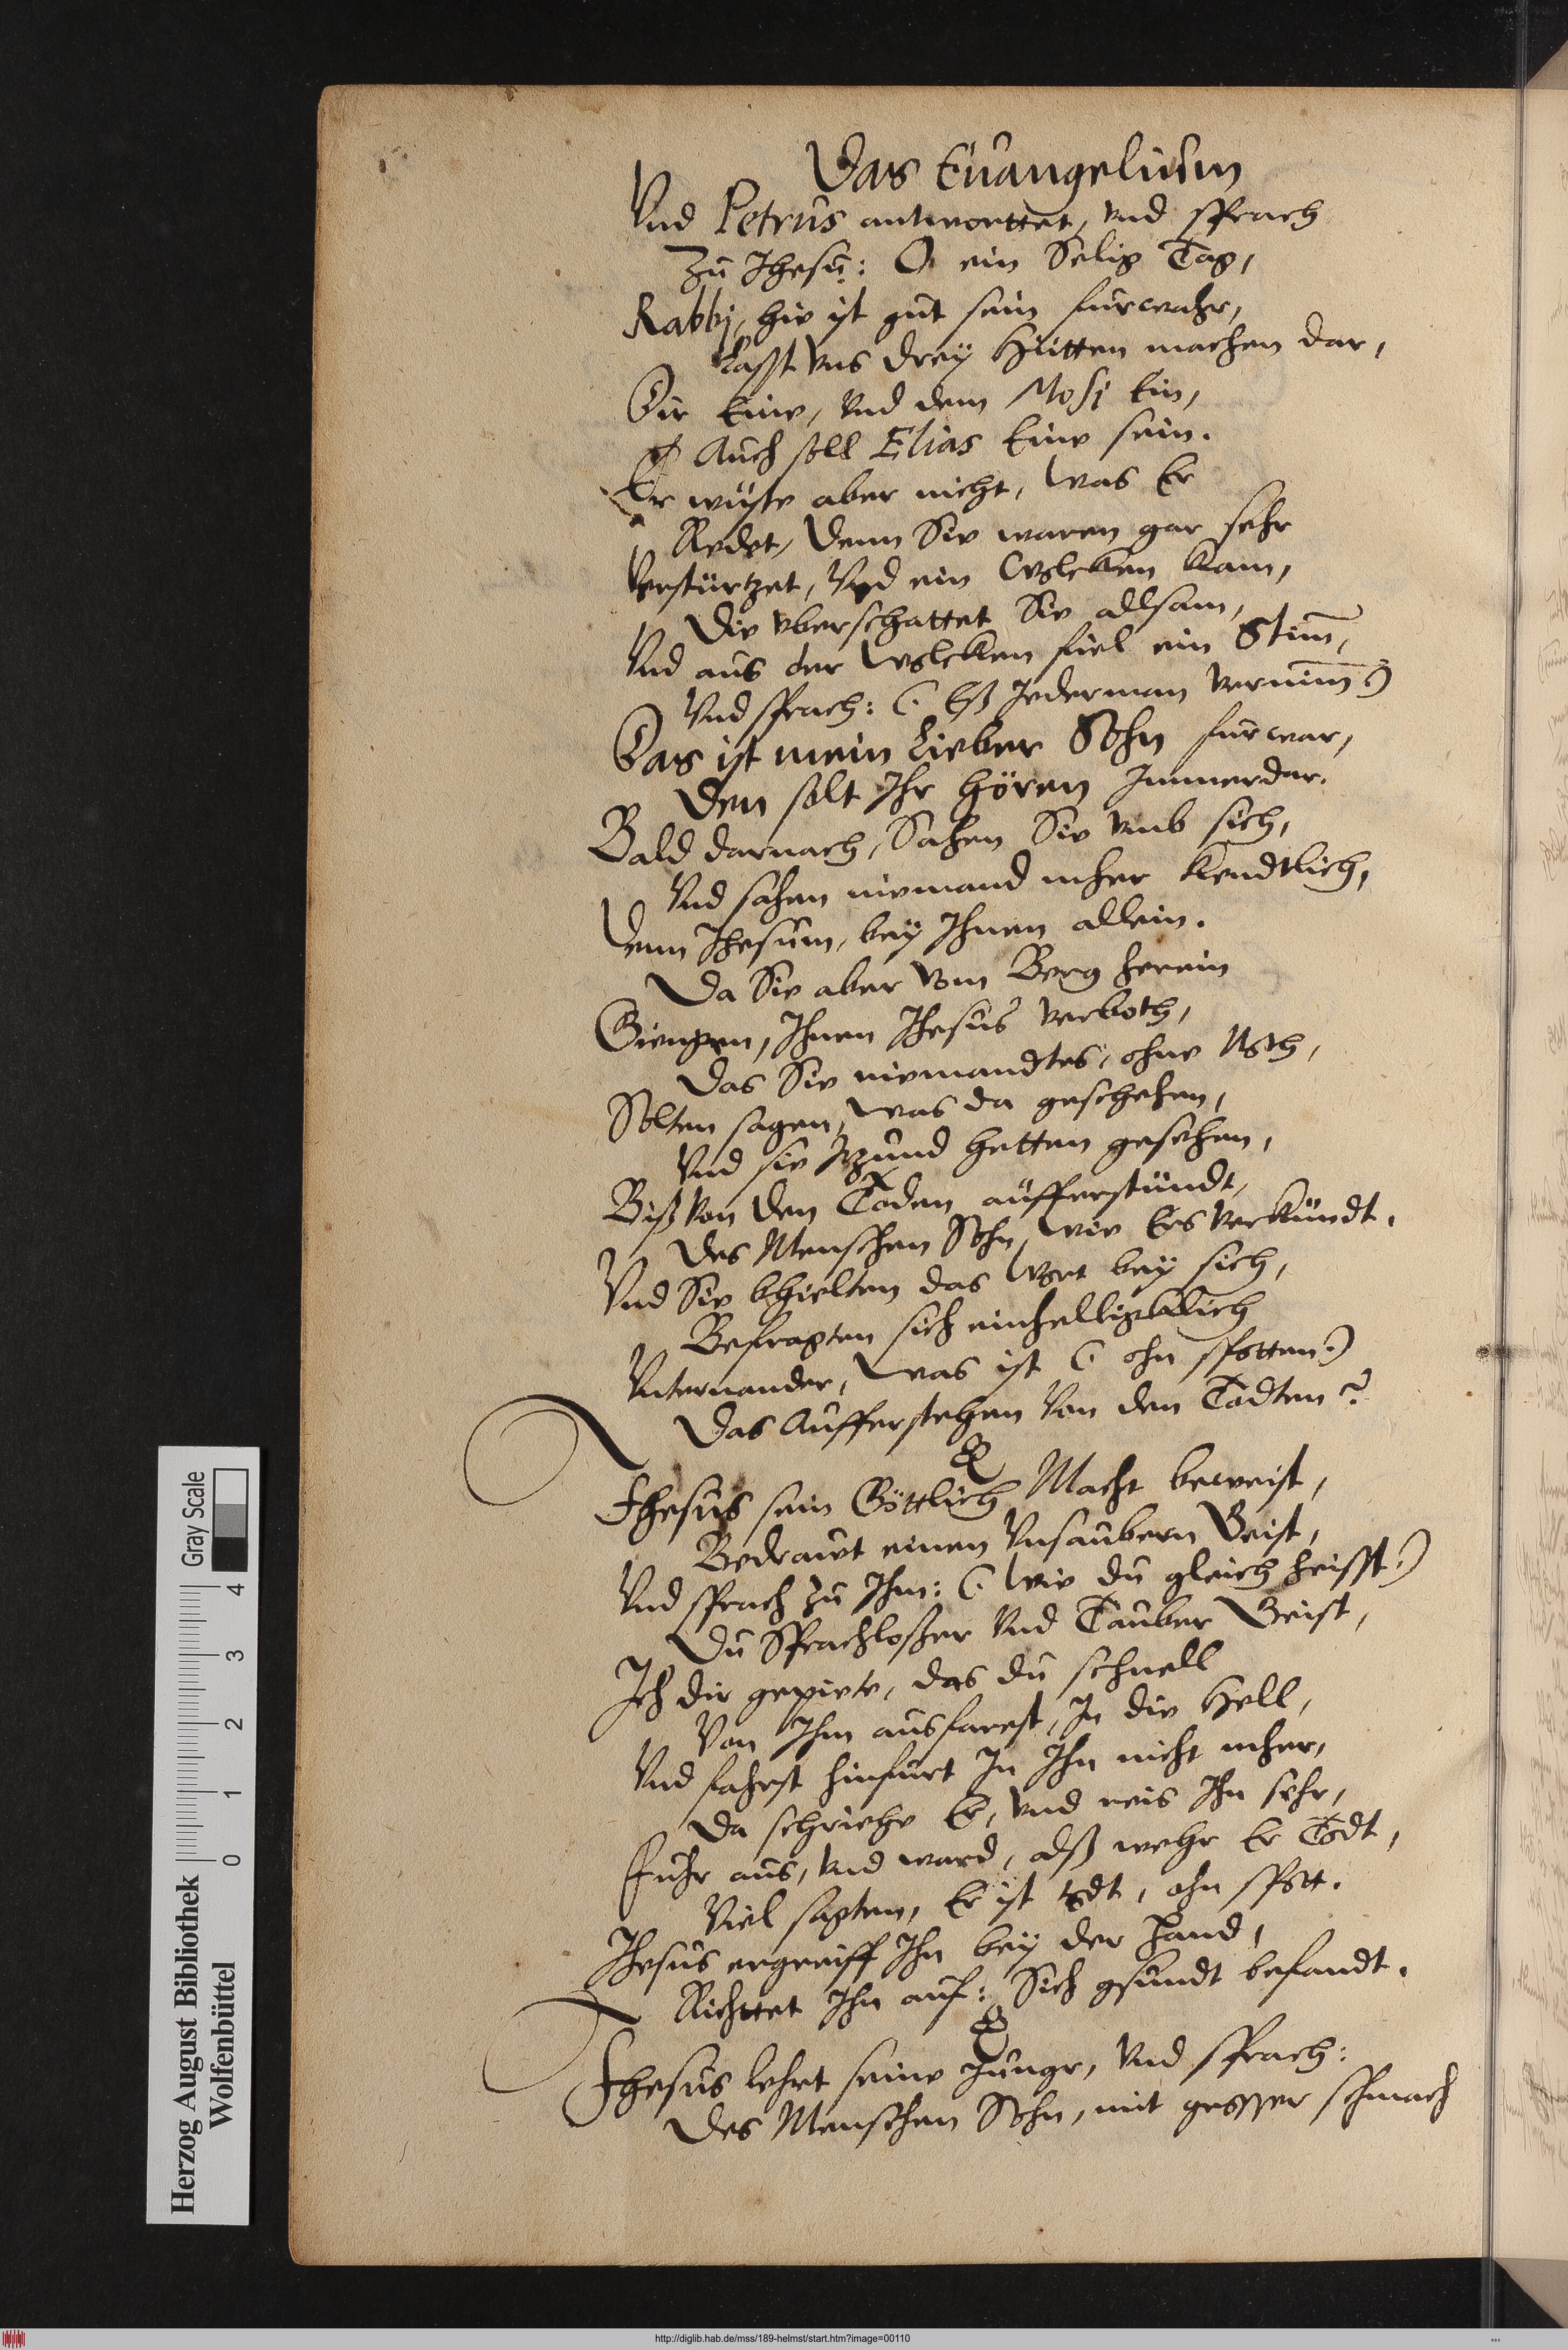 Das Euangelium
Vnd Petrus antworttet, vnd sprach
Zu Jhesu: O ein Selig Tag,
Rabbi, hie ist gut sein furwahr,
Lasst vns drey Hütten machen dar,
Dir Eine, vnd dem Mosi Ein,
Auch soll Elias Eine sein.
Er wuste aber nicht, was Er
Redet, Denn Sie waren gar sehr
Verstürtzet, Vnd ein Wolcken kam,
Die vberschattet Sie allsam,
Vnd aus der Wolcken fiel ein Stim̅,
Vnd sprach: (Es Jederman vernim̅)
Das ist mein Lieber Sohn furwar,
Den solt Ihr hören Immerdar.
Bald darnach, Sahen Sie vmb sich,
Vnd sahen niemand mher kendtlich,
Denn Jhesum, bey Ihnen allein.
Da Sie aber vom Berg herein
Giengen, Ihnen Jhesus verboth,
Das Sie niemandtes, ohne Noth,
Solten sagen, was da geschehen,
Vnd sie Itzund hetten gesehen,
Biß Von den Toden aufferstündt,
Des Menschen Sohn, wie Ers verkündt.
Vnd Sie bhielten das Wort bey sich,
Befragten sich einhelligklich
Vnternander, was ist (ohn spotten)
Das Aufferstehen Von den Todten?
Jhesus sein Göttlich Macht beweist,
Bedrawt einen Vnsaubern Geist,
Vnd sprach zu Ihm: (Wie du gleich heisst)
Du Sprachloßer Vnd Tauber Geist,
Ich dir gepiete, das du schnell
Von Ihm ausfarest, In die Hell,
Vnd fahrst hinfurt In Ihn nicht mher,
Da schriehe Er, vnd reis Ihn sehr,
Fuhr aus, vnd ward, alß wehr Er Todt,
Viel sagten, Er ist todt, ohn spott.
Jhesus ergreiff Ihn bey der Hand,
Richttet Ihn auf: Sich gsundt befandt.
Jhesus lehrt seine Junger, Vnd sprach:
Des Menschen Sohn, mit grosser schmach
Herzog August Bibliothek
Wolfenbüttel
0 1 2 3 4
Gray Scale
http://diglib.hab.de/mss/189-helmst/start.htm?image=00110